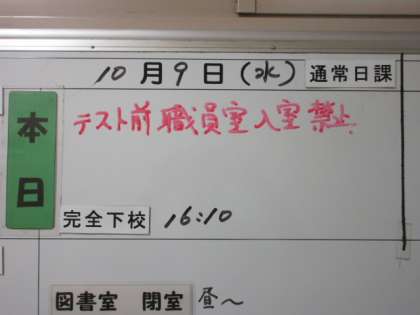 10月9日(水) 通常日課
本日
テスト前職員室入室禁止
完全下校 16:10
図書室 閉室 昼～